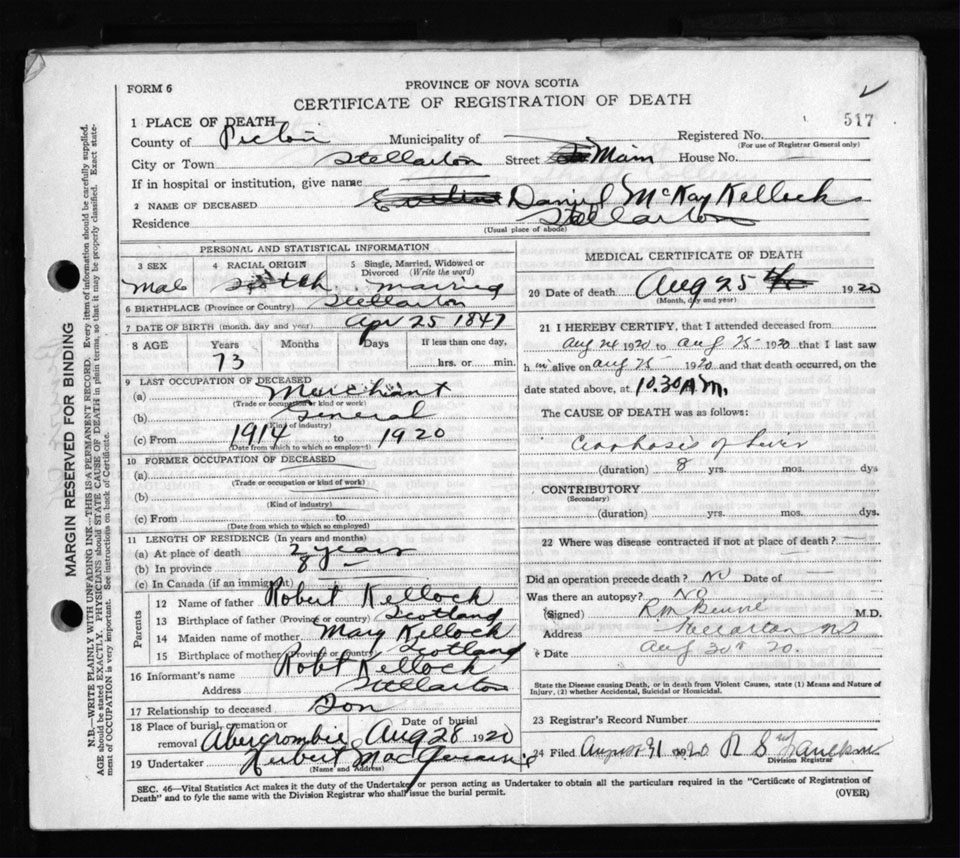 FORM 6
PROVINCE OF NOVA SCOTIA
CERTIFICATE OF REGISTRATION OF DEATH
517
1 PLACE OF DEATH
County of Pictou Municipality of Registered No.
(For use of Registrar General only)
City or Town Stellarton Street Main House No.
If in hospital or institution, give name
2 NAME OF DECEASED Daniel McKay Kellock
Residence Stellarton
(Usual place of abode)
PERSONAL AND STATISTICAL INFORMATION
3 SEX 4 RACIAL ORIGIN 5 Single, Married, Widowed or Divorced (Write the word)
Male Scotch Married
6 BIRTHPLACE (Province or Country) Stellarton
7 DATE OF BIRTH (month, day and year) Apr 25 1847
8 AGE Years Months Days If less than one day,
73 hrs. or min.
9 LAST OCCUPATION OF DECEASED
(a) Merchant
(Trade or occupation or kind of work)
(b) General
(Kind of industry)
(c) From 1914 to 1920
(Date from which to which so employed)
10 FORMER OCCUPATION OF DECEASED
(a)
(Trade or occupation or kind of work)
(b)
(Kind of industry)
(c) From to
(Date from which to which so employed)
11 LENGTH OF RESIDENCE (In years and months)
(a) At place of death 2 years
(b) In province 8
(c) In Canada (if an immigrant)
Parents
12 Name of father Robert Kellock
13 Birthplace of father (Province or country) Scotland
14 Maiden name of mother Mary Kellock
15 Birthplace of mother (Province or country) Scotland
16 Informant's name Robt Kellock
Address Stellarton
17 Relationship to deceased Son
18 Place of burial, cremation or removal Abercrombie Date of burial Aug 28 1920
19 Undertaker Herbert
(Name and Address)
MEDICAL CERTIFICATE OF DEATH
20 Date of death Aug 25 1920
(Month, day and year)
21 I HEREBY CERTIFY, that I attended deceased from
Aug 24 1920 to Aug 25 1920 that I last saw
him alive on Aug 25 1920 and that death occurred, on the
date stated above, at 10.30 A.M.
The CAUSE OF DEATH was as follows:
Cirrhosis of Liver
(duration) 8 yrs. mos. dys
CONTRIBUTORY
(Secondary)
(duration) yrs. mos. dys.
22 Where was disease contracted if not at place of death?
Did an operation precede death? No Date of
Was there an autopsy? No
(Signed) M.D.
Address Stellarton NS
Date Aug 20.
State the Disease causing Death, or in death from Violent Causes, state (1) Means and Nature of
Injury, (2) whether Accidental, Suicidal or Homicidal.
23 Registrar's Record Number
24 Filed August 31 1920 R S
Division Registrar
SEC. 46—Vital Statistics Act makes it the duty of the Undertaker or person acting as Undertaker to obtain all the particulars required in the "Certificate of Registration of
Death" and to fyle the same with the Division Registrar who shall issue the burial permit.
(OVER)
MARGIN RESERVED FOR BINDING
N.B.—WRITE PLAINLY WITH UNFADING INK—THIS IS A PERMANENT RECORD. Every item of information should be carefully supplied.
AGE should be stated EXACTLY. PHYSICIANS should STATE CAUSE OF DEATH in plain terms, so that it may be properly classified. Exact state-
ment of OCCUPATION is very important. See instructions on back of Certificate.